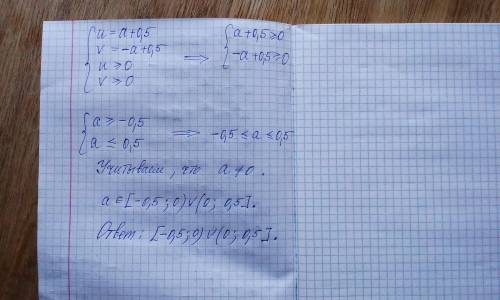 { u = a+0,5
v = -a+0,5
u ≥ 0
v ≥ 0 ⟹ { a+0,5 ≥ 0
-a+0,5 ≥ 0
{ a ≥ -0,5
a ≤ 0,5 ⟹ -0,5 ≤ a ≤ 0,5
Учитываем, что a ≠ 0.
a ∈ [-0,5; 0) ∪ (0; 0,5].
Ответ: [-0,5; 0) ∪ (0; 0,5].